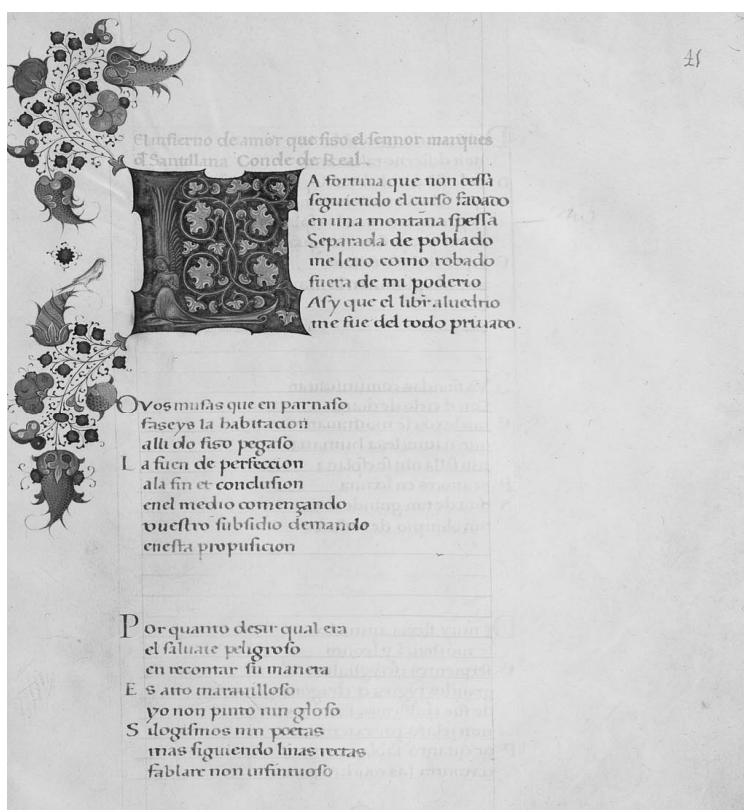 41
El infierno de amor que fiso el sennor marques
de Santillana Conde de Real.
LA fortuna que non cessa
seguiendo el curso fadado
en una montaña spessa
Separada de poblado
me leuo como robado
fuera de mi poderio
Asy que el libr aluedrio
me fue del todo priuado.
O vos musas que en parnaso
faseys la habitacion
alli do fiso pegaso
La fuen de perfeccion
a la fin et conclusion
en el medio començando
vuestro subsidio demando
en esta propusicion
Por quanto desir qual era
el saluaie peligroso
en recontar su manera
Es acto marauilloso
yo non pinto nin gloso
Silogismos nin poetas
mas siguiendo linas rectas
fablare non infintuoso